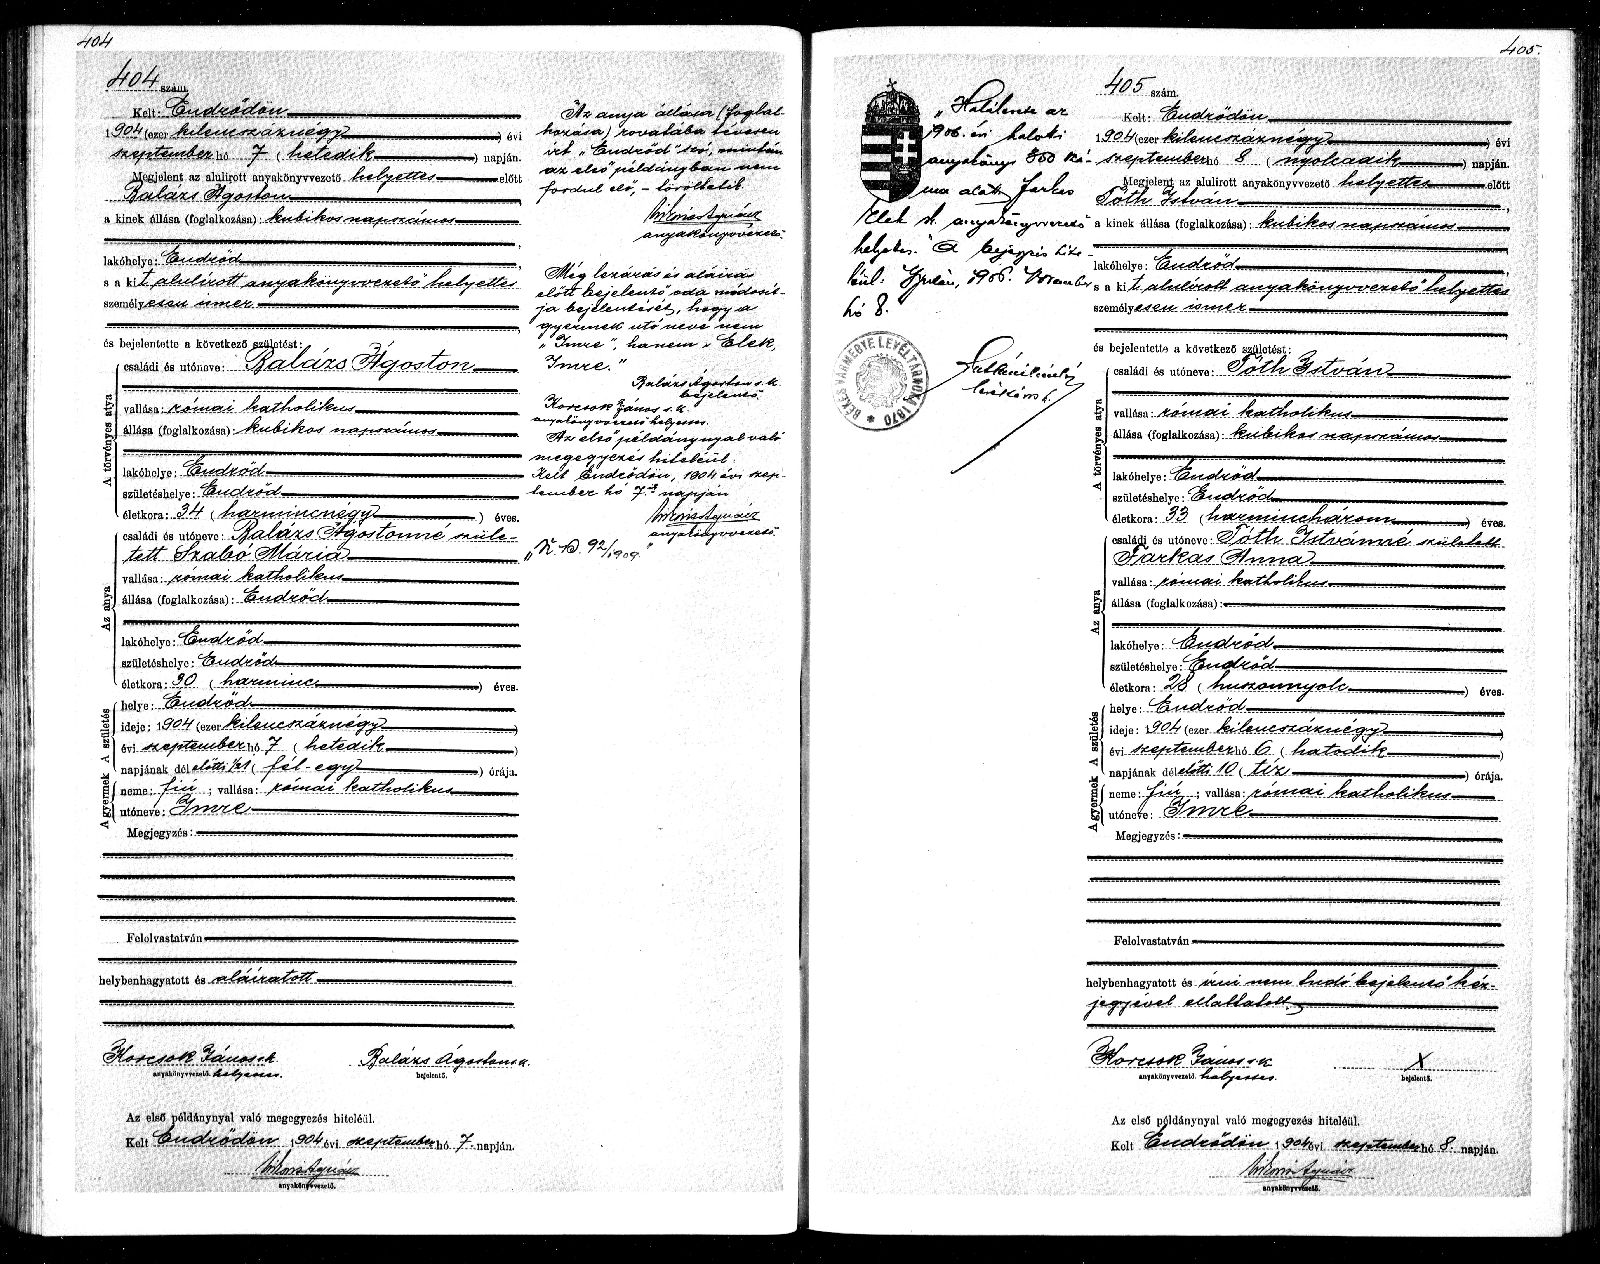 404
404 szám.
Kelt: Endrődön
1904 (ezer kilencszáznégy) évi
szeptember hó 7 (hetedik) napján.
Megjelent az alulirott anyakönyvvezető helyettes előtt
Balázs Ágoston
a kinek állása (foglalkozása): kubikos napszámos
,
lakóhelye: Endrőd
s a kit alulirott anyakönyvvezető helyettes
személyesen ismer
,
és bejelentette a következő születést:
A törvényes atya
családi és utóneve: Balázs Ágoston
vallása: római katholikus
állása (foglalkozása): kubikos napszámos
lakóhelye: Endrőd
születéshelye: Endrőd
életkora: 34 (harmincnégy) éves.
Az anya
családi és utóneve: Balázs Ágostonné szüle-
tett Szabó Mária
vallása: római katholikus
állása (foglalkozása): Endrőd
lakóhelye: Endrőd
születéshelye: Endrőd
életkora: 30 (harminc) éves.
A születés
helye: Endrőd
ideje: 1904 (ezer kilencszáznégy)
évi szeptember hó 7 (hetedik)
napjának délelőtti ½1 (fél-egy) órája.
A gyermek
neme: fiú; vallása: római katholikus
utóneve: Imre
Megjegyzés:
Felolvastatván
helybenhagyatott és aláiratott
Korcsok János s.k. Balázs Ágoston s.k.
anyakönyvvezető helyettes. bejelentő.
Az első példánynyal való megegyezés hiteléül.
Kelt Endrődön 1904 évi szeptember hó 7. napján.
anyakönyvvezető.
Az anya állása (foglal-
kozása) rovatába tévesen
irt "Endrőd" szó, miután
az első példányban nem
fordul elő, - töröltetik.
anyakönyvvezető.
Még lezárás és aláirás
előtt bejelentő oda módosit-
ja bejelentését, hogy a
gyermek utó neve nem
"Imre", hanem "Elek,
Imre."
Balázs Ágoston s.k.
bejelentő.
Korcsok János s.k.
anyakönyvvezető helyettes.
Az első példánynyal való
megegyezés hiteléül.
Kelt Endrődön, 1904 évi szep-
tember hó 7-ik napján
anyakönyvvezető.
92/1909."
405.
"Halálesete az
1906. évi halotti
anyakönyv 360 szá-
ma alatt Farkas
Elek s.k. anyakönyvvezető
helyettes." A bejegyzés hite-
léül: Gyulán, 1906. November
hó 8.
BÉKÉS VÁRMEGYE LEVÉLTÁRNOKA 1870
405 szám.
Kelt: Endrődön
1904 (ezer kilencszáznégy) évi
szeptember hó 8 (nyolcadik) napján.
Megjelent az alulirott anyakönyvvezető helyettes előtt
Tóth István
a kinek állása (foglalkozása): kubikos napszámos
,
lakóhelye: Endrőd
s a kit alulirott anyakönyvvezető helyettes
személyesen ismer
,
és bejelentette a következő születést:
A törvényes atya
családi és utóneve: Tóth István
vallása: római katholikus
állása (foglalkozása): kubikos napszámos
lakóhelye: Endrőd
születéshelye: Endrőd
életkora: 33 (harminchárom) éves.
Az anya
családi és utóneve: Tóth Istvánné született
Farkas Anna
vallása: római katholikus
állása (foglalkozása):
lakóhelye: Endrőd
születéshelye: Endrőd
életkora: 28 (huszonnyolc) éves.
A születés
helye: Endrőd
ideje: 1904 (ezer kilencszáznégy)
évi szeptember hó 6 (hatodik)
napjának délelőtti 10 (tíz) órája.
A gyermek
neme: fiú; vallása: római katholikus
utóneve: Imre
Megjegyzés:
Felolvastatván
helybenhagyatott és irni nem tudó bejelentő kéz-
jegyével elláttatott.
Korcsok János s.k. X
anyakönyvvezető helyettes. bejelentő.
Az első példánynyal való megegyezés hiteléül.
Kelt Endrődön 1904 évi szeptember hó 8. napján.
anyakönyvvezető.